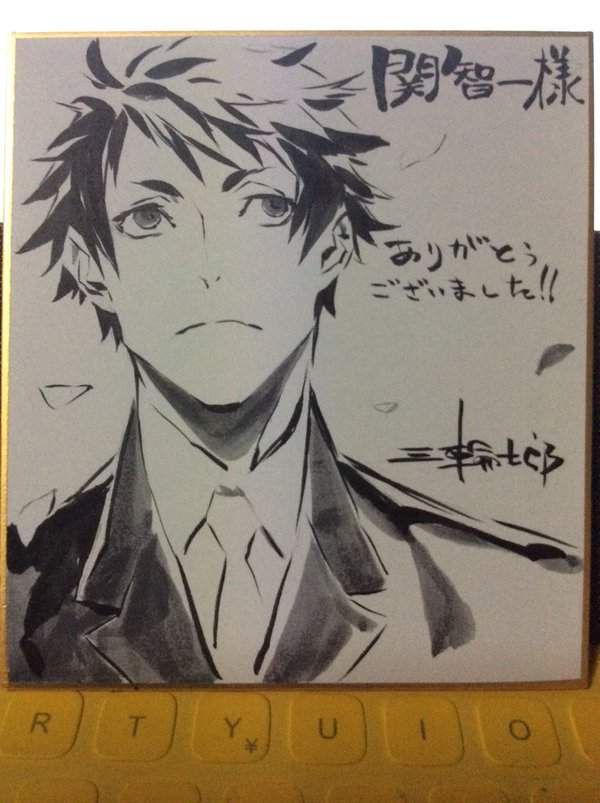 関智一様
ありがとう
ございました!!
三輪士郎
R T Y ¥ U I O